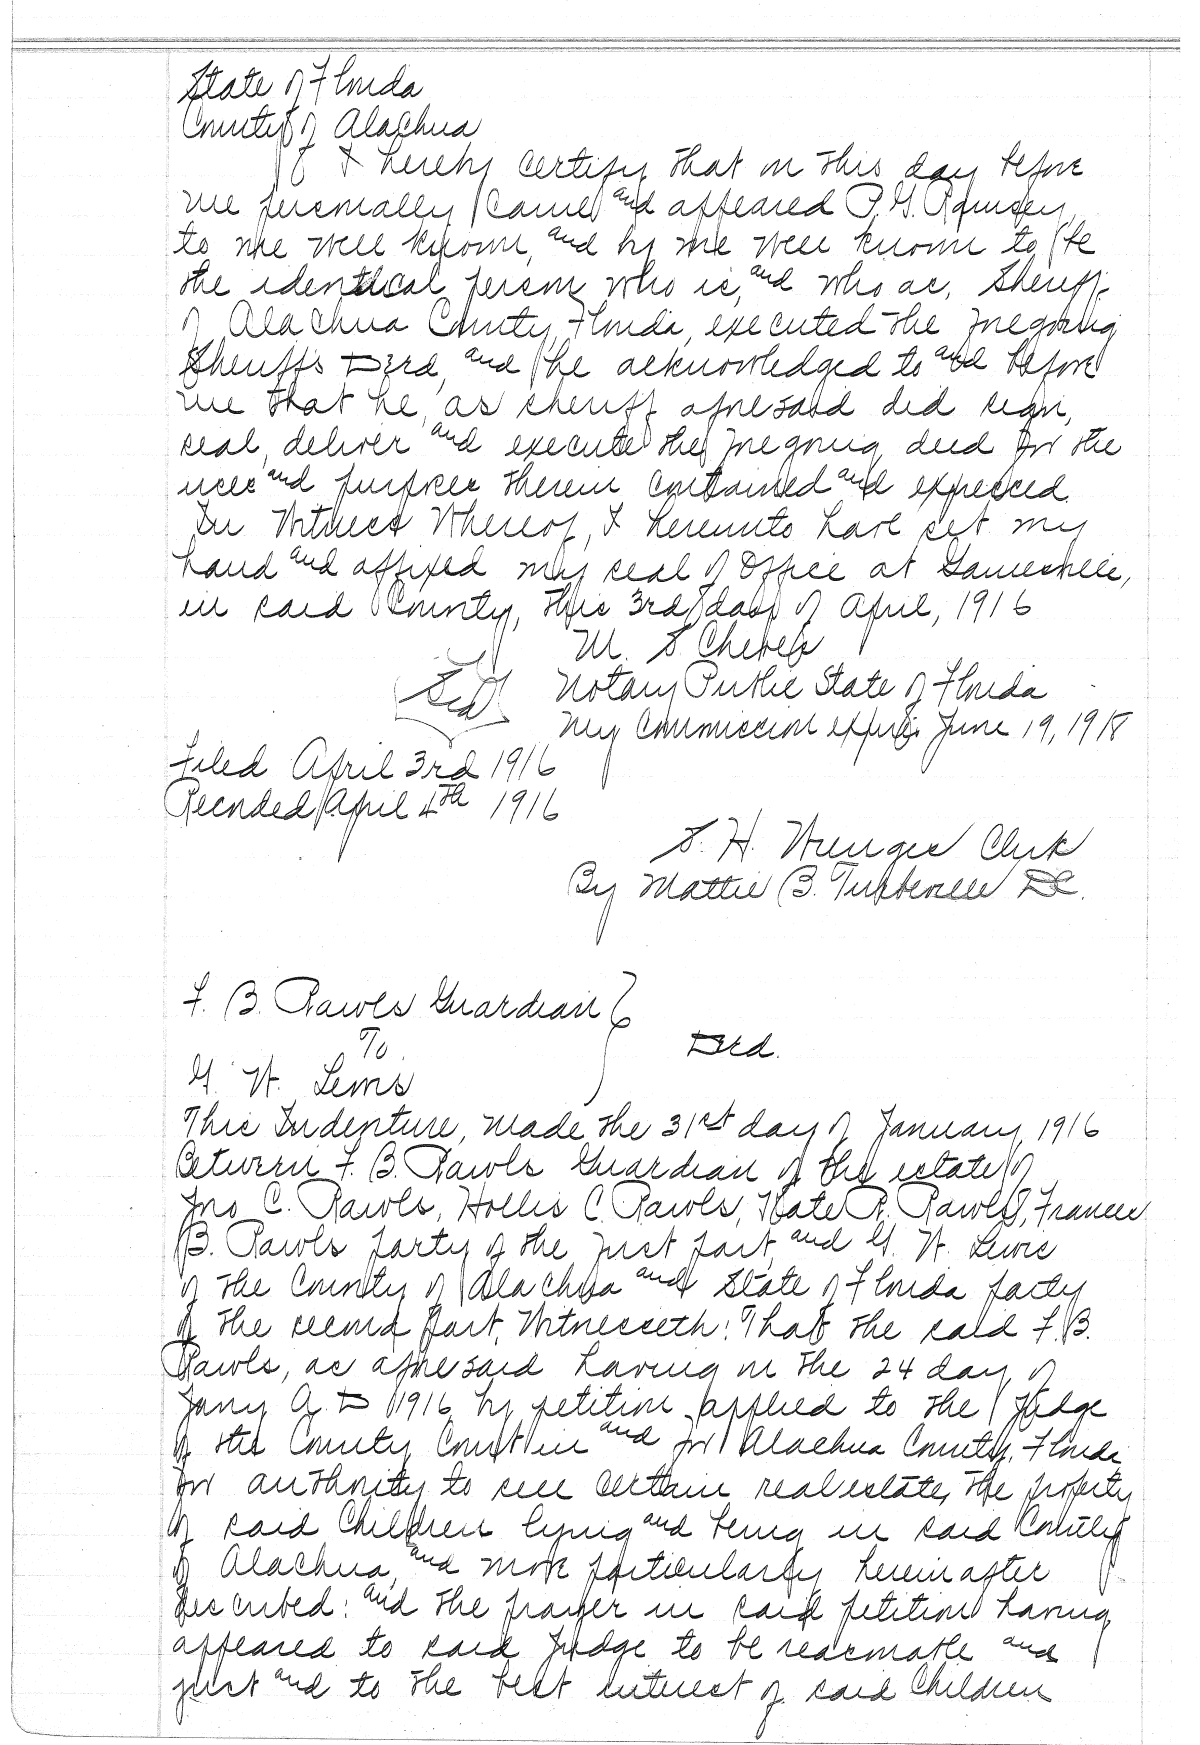 State of Florida
County of Alachua
I hereby certify that on this day before
me personally came and appeared P. G. Ramsey,
to me well known, and by me well known to be
the identical person who is, and who as, Sheriff
of Alachua County, Florida, executed the foregoing
Sheriff's Deed, and he acknowledged to and before
me that he, as sheriff aforesaid did sign,
seal, deliver and execute the foregoing deed for the
uses and purposes therein contained and expressed.
In Witness Whereof, I hereunto have set my
hand and affixed my seal of Office at Gainesville,
in said County, this 3rd day of April, 1916
M. S Cheves
Seal Notary Public State of Florida
My Commission expires June 19, 1918
Filed April 3rd 1916
Recorded April 4th 1916
S. H. Wienges Clerk
By Mattie B. DC.
F. B. Rawls Guardian
To
Deed.
G. W. Lewis
This Indenture, Made the 31st day of January, 1916
Between F. B. Rawls Guardian of the estate of
Jno C. Rawls, Hollis C. Rawls, Kate R. Rawls, Frances
B. Rawls party of the first part, and G. W. Lewis
of the County of Alachua and State of Florida party
of the second part, Witnesseth: That the said F. B.
Rawls, as aforesaid having on the 24 day of
Jany A. D 1916 by petition applied to the Judge
of the County Court in and for Alachua County, Florida
for authority to sell certain real estate, the property
of said Children lying and being in said County
of Alachua, and more particularly hereinafter
described: and the prayer in said petition having
appeared to said Judge to be reasonable and
just and to the best interest of said Children